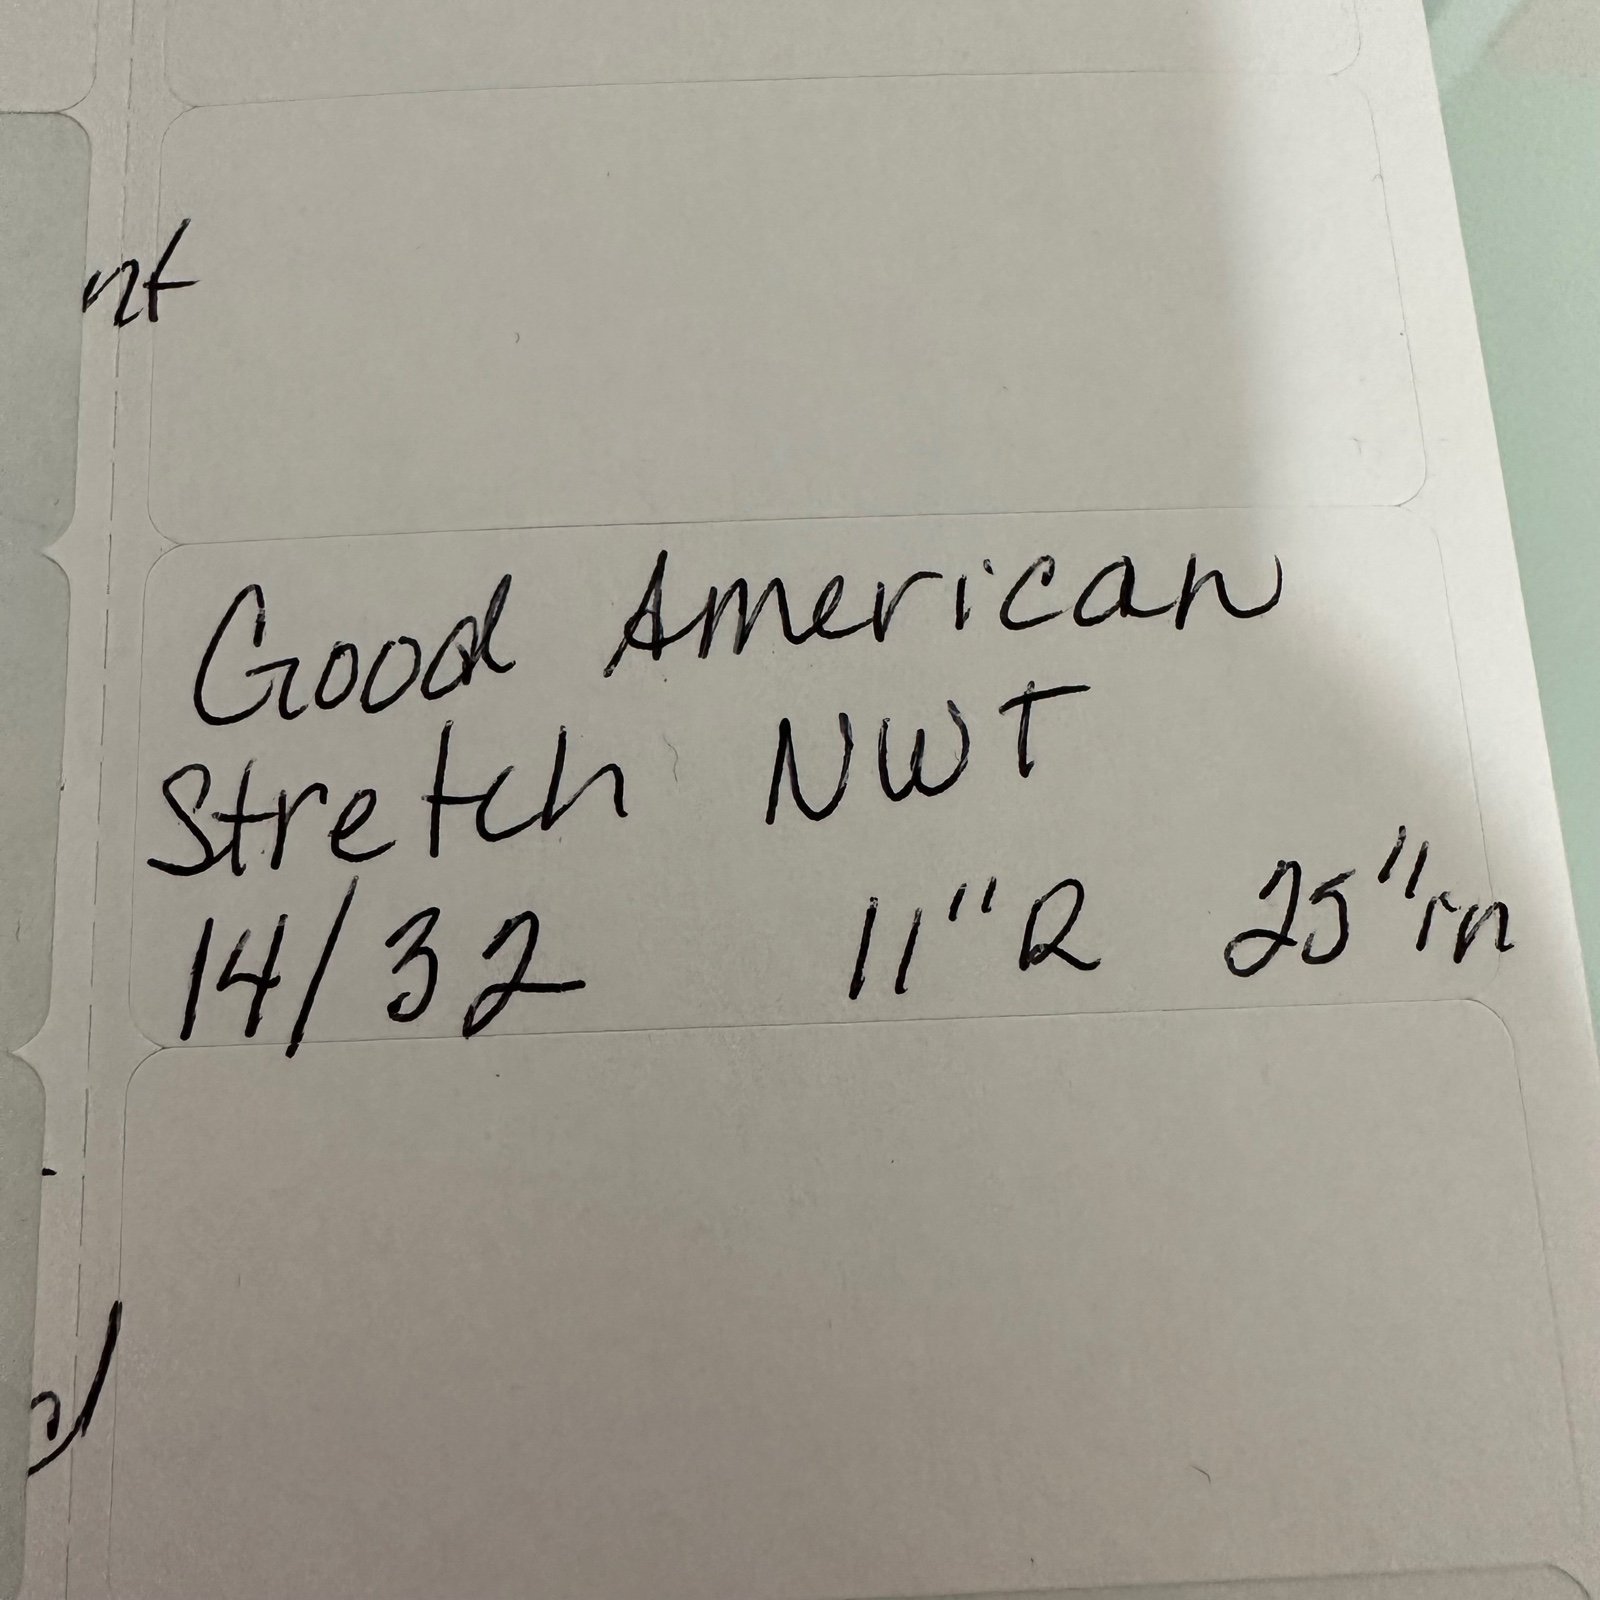 nt
Good American
Stretch NWT
14/32 11"R 25"in